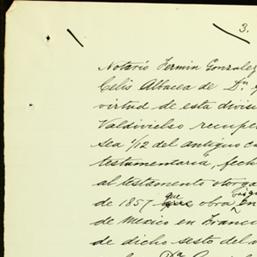 3.
Notario Fermin Gonzalez
Celis Albacea de Dⁿ
virtud de esta divisi
Valdivielso recupe
sea 1/12 del antiguo ca
testamentaria, fech
al testamento otorga
de 1857 que obra en
de Mexico en Franci
de dicho sesto del a